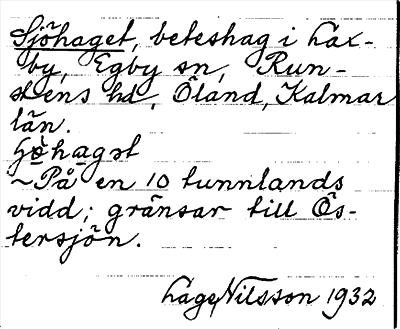 Sjöhaget, beteshag i Lax-
by, Egby sn, Run-
stens hd, Öland, Kalmar
län.
hagət
~ På en 10 tunnlands
vidd; gränsar till Ös-
tersjön.
Låge Nilsson 1932